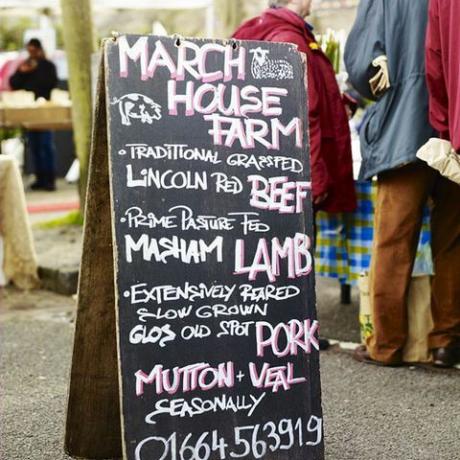 MARCH
HOUSE
FARM
• TRADITIONAL GRASSFED
LINCOLN RED BEEF
• PRIME PASTURE FED
MASHAM LAMB
• EXTENSIVELY REARED
SLOW GROWN
GLOS OLD SPOT PORK
MUTTON + VEAL
SEASONALLY
01664563919